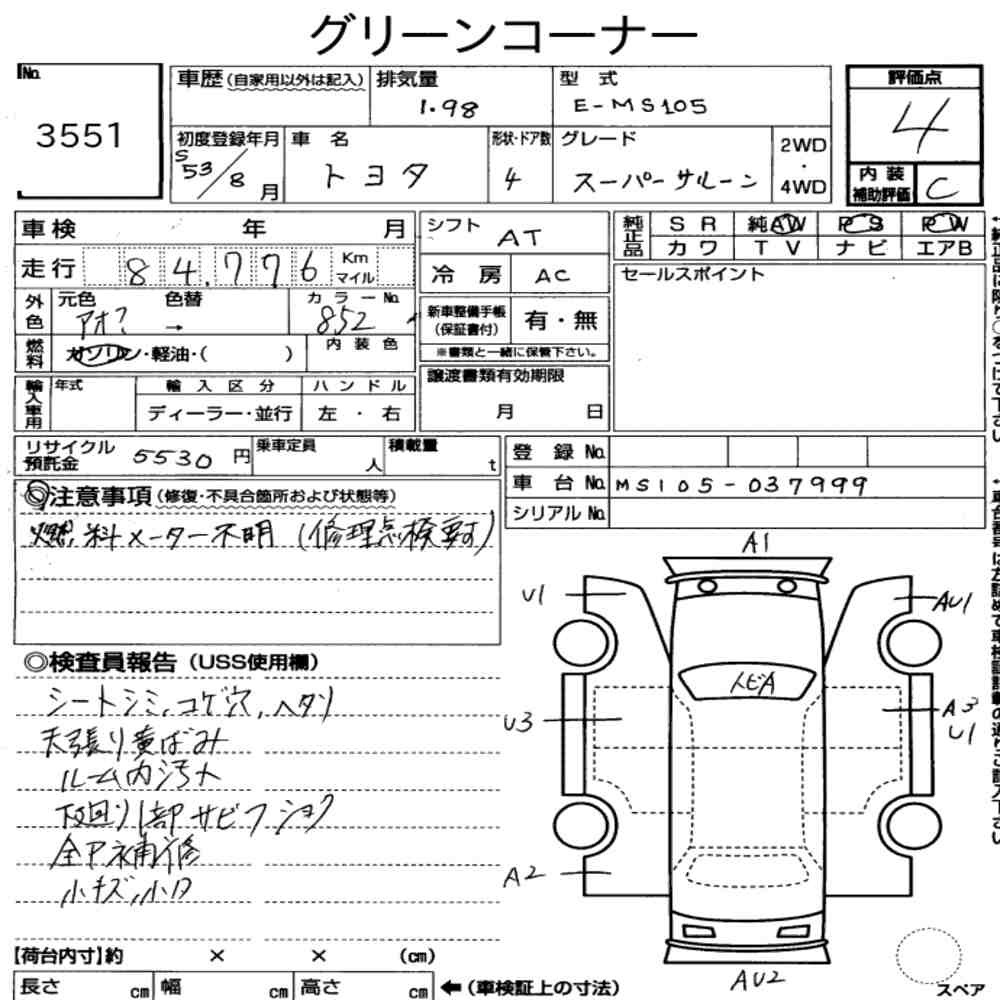 グリーンコーナー
No.
3551
車歴(自家用以外は記入)
排気量
1.98
型 式
E-MS105
評価点
4
初度登録年月
S53/8月
車 名
トヨタ
形状・ドア数
4
グレード
スーパーサルーン
2WD
・
4WD
内装
補助評価
C
車検 年 月
シフト
AT
純正品
SR 純AW PS PW
カワ TV ナビ エアB
走行 84,776 Km マイル
冷房
AC
セールスポイント
外色
元色 色替
アオ? →
カラーNo.
852
新車整備手帳
(保証書付)
有・無
※書類と一緒に保管下さい。
燃料
ガソリン・軽油・( )
内装色
輸入車用
年式
輸入区分
ディーラー・並行
ハンドル
左・右
譲渡書類有効期限
月 日
リサイクル
預託金
5530 円
乗車定員
人
積載量
t
登録No.
車台No.
MS105-037999
シリアルNo.
◎注意事項(修復・不具合箇所および状態等)
燃料メーター不明(修理点検要す)
◎検査員報告(USS使用欄)
シートシミ、コゲ穴、ヘタリ
天張り黄ばみ
ルーム内汚れ
下廻り1部サビフショク
全P補修
小キズ、小凹
A1
U1
AU1
トビA
U3
A3
U1
A2
AU2
【荷台内寸】約 × × (cm)
長さ cm
幅 cm
高さ cm
←(車検証上の寸法)
スペア